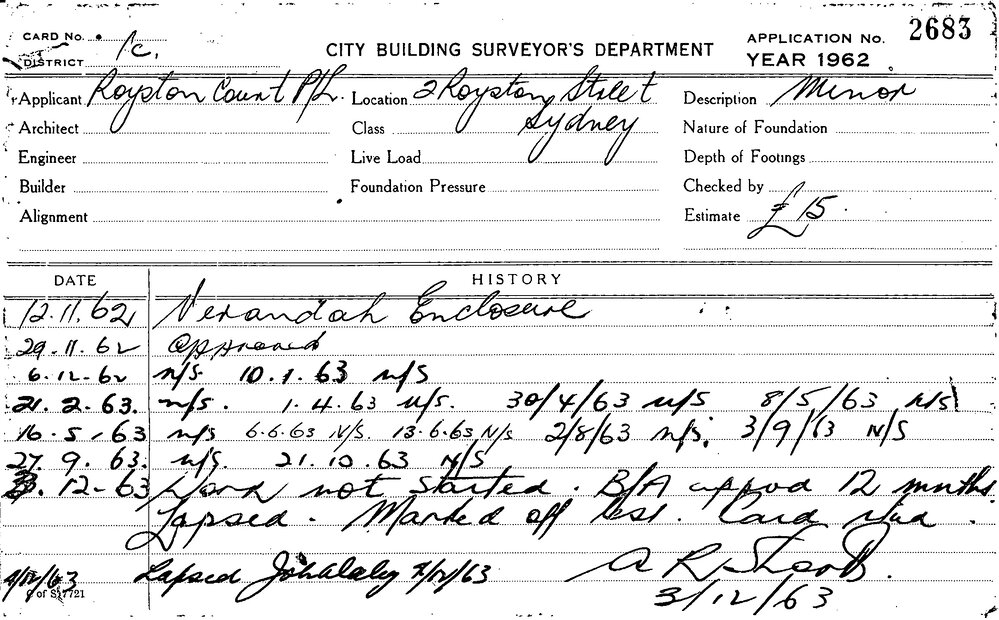 CARD No. 1c, CITY BUILDING SURVEYOR'S DEPARTMENT APPLICATION No. 2683
DISTRICT YEAR 1962
Applicant Royston Court P/L. Location 2 Royston Street Description Minor
Architect Class Sydney Nature of Foundation
Engineer Live Load Depth of Footings
Builder Foundation Pressure Checked by
Alignment Estimate £15.
DATE HISTORY
12.11.62 Verandah Enclosure
29.11.62 Approved
6-12-62 n/s. 10.1.63 n/s
21.2.63. n/s. 1.4.63 n/s. 30/4/63 n/s 8/5/63 N/S
16.5.63 n/s 6.6.63 N/S. 13.6.63 N/S 2/8/63 n/s. 3/9/63 N/S
27.9.63. n/s. 21.10.63 N/S
3.12-63 Work not started. B/A approd 12 months.
Lapsed. Marked off Card
4/12/63 Lapsed /12/63 A R
3/12/63
of S17721